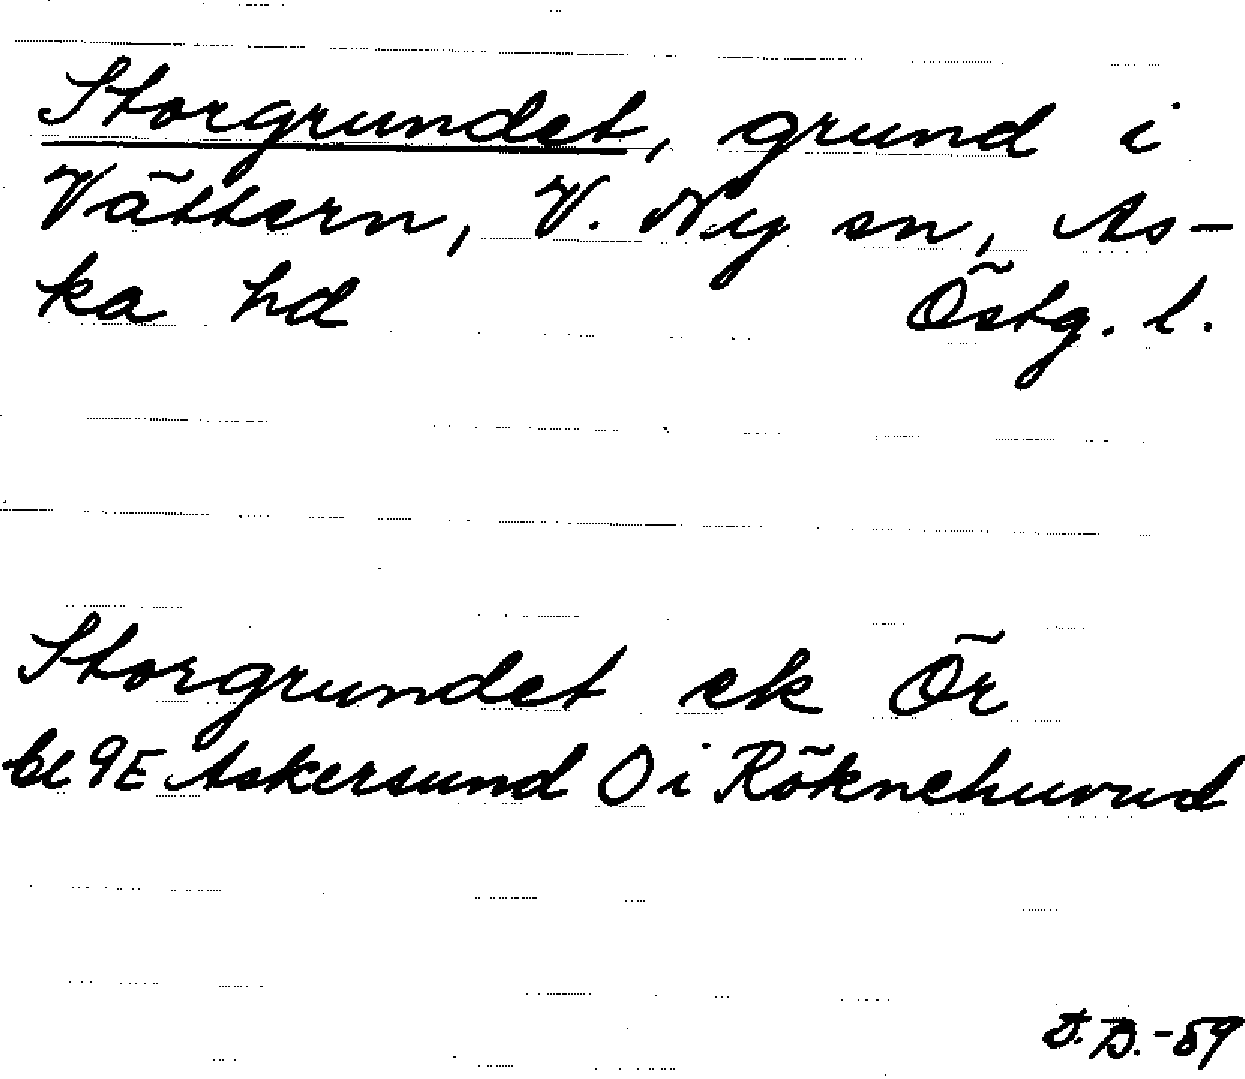 Storgrundet, grund i
Vättern, V. Ny sn, As-
ka hd Östg. l.
Storgrundet ek Ör
bl 9E Askersund O i Röknehuvud
D.-59